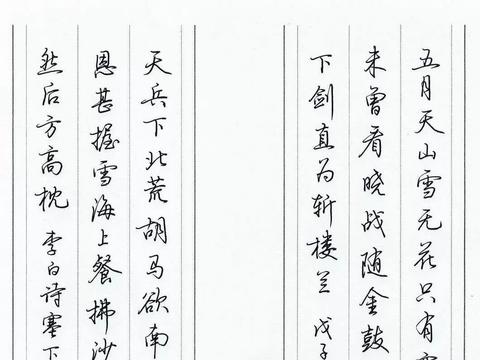 五月天山雪无花只有
未曾看晓战随金鼓
下剑直为斩楼兰 戊子
天兵下北荒胡马欲南
恩甚握雪海上餐拂沙
然后方高枕 李白诗塞下